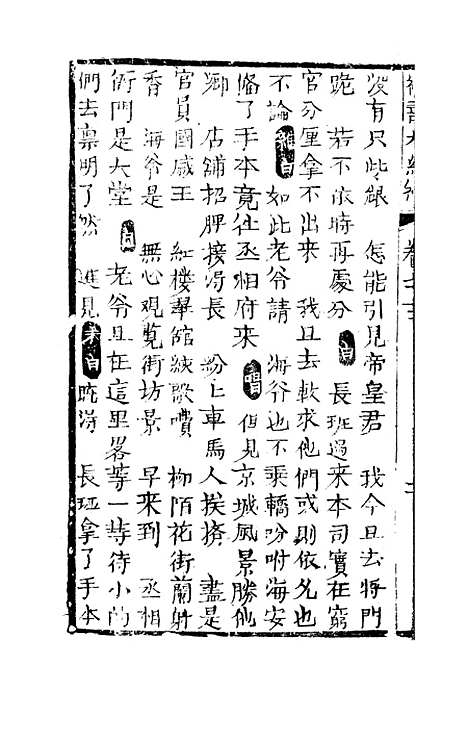 沒有只些銀　怎能引見帝皇君　我今且去將門
跪　若不依時再處分　白　長班過來本司實在窮
官分厘拿不出來　我且去軟求他們或則依允也
不論　雜白　如此老爷請　海爷也不乘轎吩咐海安
偹了手本竟往丞相府來　唱　但見京城風景勝他
鄉　店舖招牌接浔長　紛上車馬人挨擠　盡是
官員國戚王　紅樓畢舘綾歌噴　柳陌花街蘭射
香　海爷是　無心观覧街坊景　早來到　丞相
衙門是大堂　白　老爷且在這里畧等一等待小的
們去禀明了然　進見　末白　曉浔　長班拿了手本